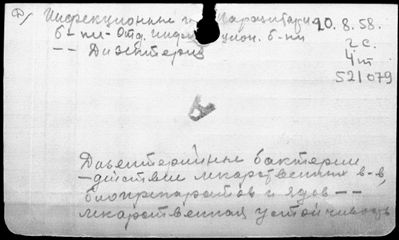 Ф) Инфекционные и паразитарн 20.8.58.
б-ни - Отд. инфекцион. б-ни 2с.
-- Дизентерия 4т
521079
Дизентерийные бактерии
- действие лекарственных в-в,
биопрепаратов и ядов --
лекарственная устойчивость